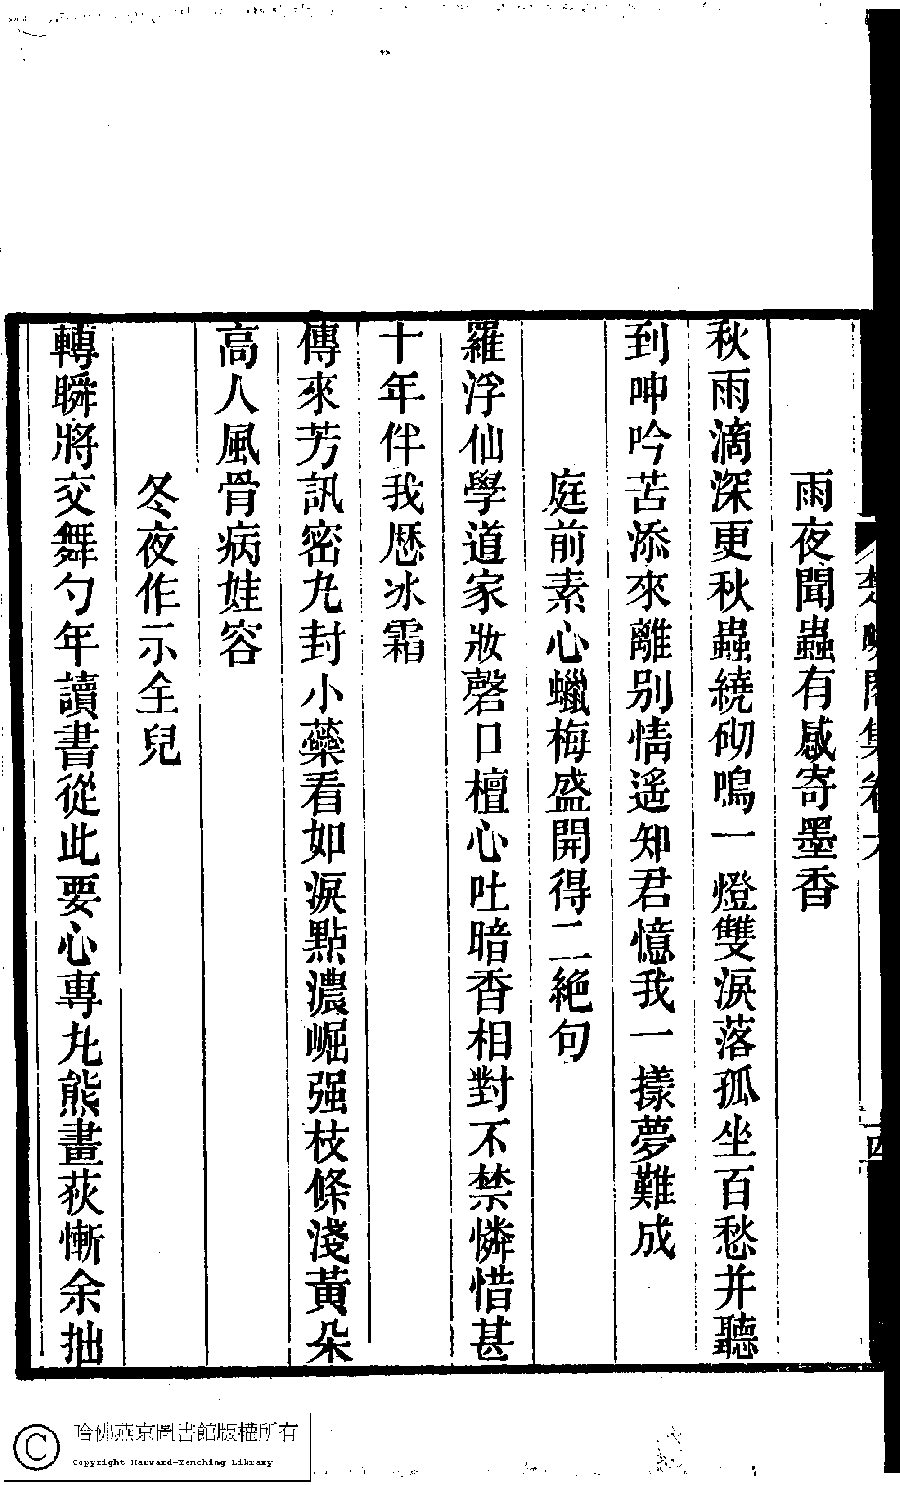 雨夜聞蟲有感寄墨香
秋雨滴深更秋蟲繞砌鳴一燈雙淚落孤坐百愁并聽
到呻吟苦添來離别情遥知君憶我一㨾夢難成
庭前素心蠟梅盛開得二絶句
羅浮仙學道家妝磬口檀心吐暗香相對不禁憐惜甚
十年伴我歷冰霜
傳來芳訊密九封小蘂看如淚點濃崛强枝條淺黃朵
高人風骨病娃容
冬夜作示全兒
轉瞬將交舞勺年讀書從此要心專九熊畫荻慚余拙
哈佛燕京圖書館版權所有
Copyright Harvard-Yenching Library